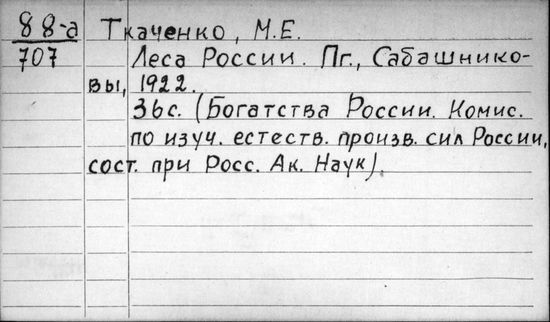 88-а Ткаченко, М.Е.
707 Леса России. Пг., Сабашнико-
вы, 1922.
36с. (Богатства России. Комис.
по изуч. естеств. произв. сил России,
сост. при Росс. Ак. Наук).